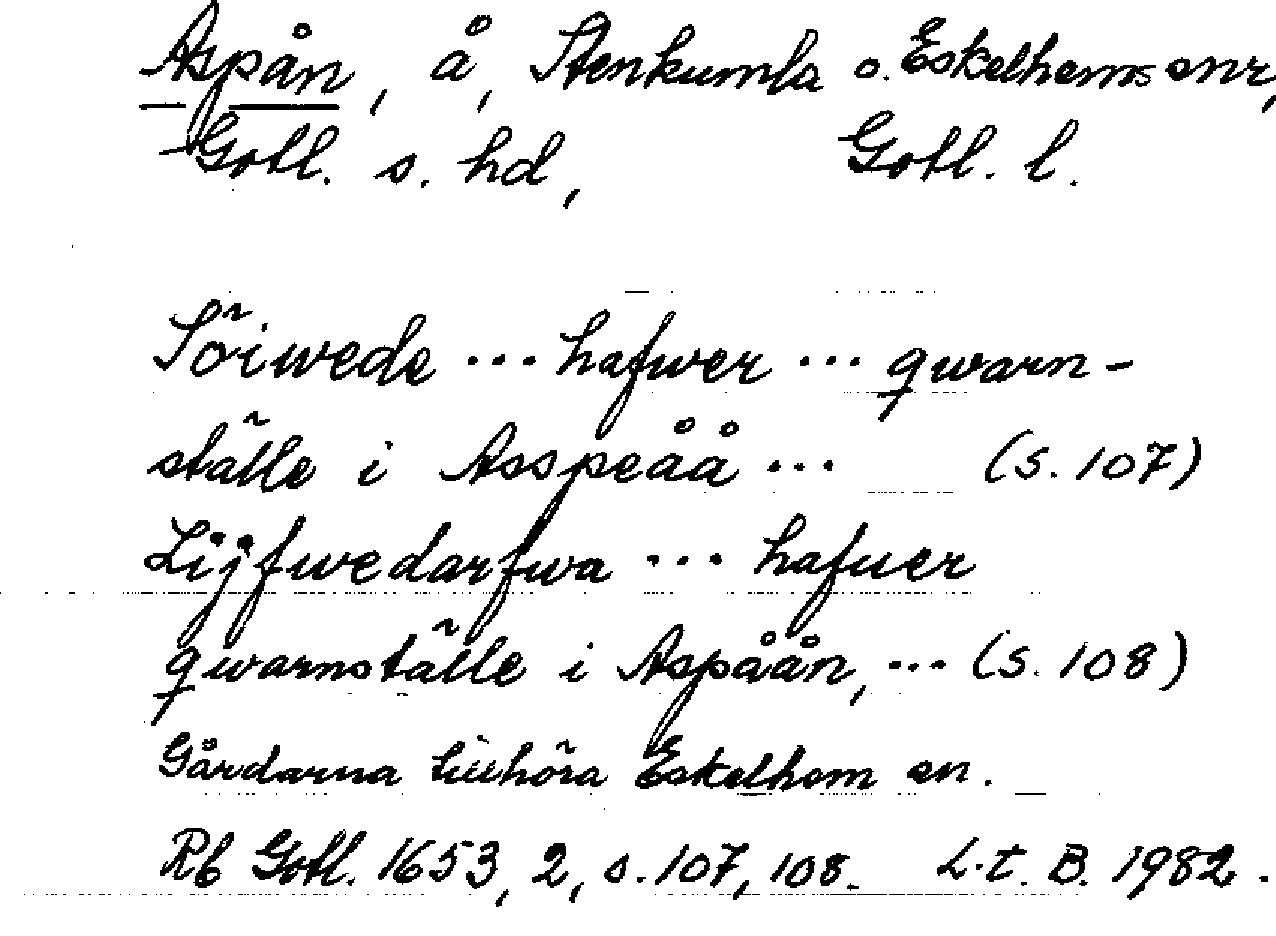 Aspån, å, Stenkumla o. Eskelhems snr,
Gotl. s. hd, Gotl. l.
Söiwede ... hafwer ... qwarn-
ställe i Asspeåå ... (s. 107)
Lijfwedarfwa ... hafuer
qwarnställe i Aspåån, ... (s. 108)
Gårdarna tillhöra Eskelhem sn.
Rb Gotl. 1653, 2, s. 107, 108. L.t. B. 1982.